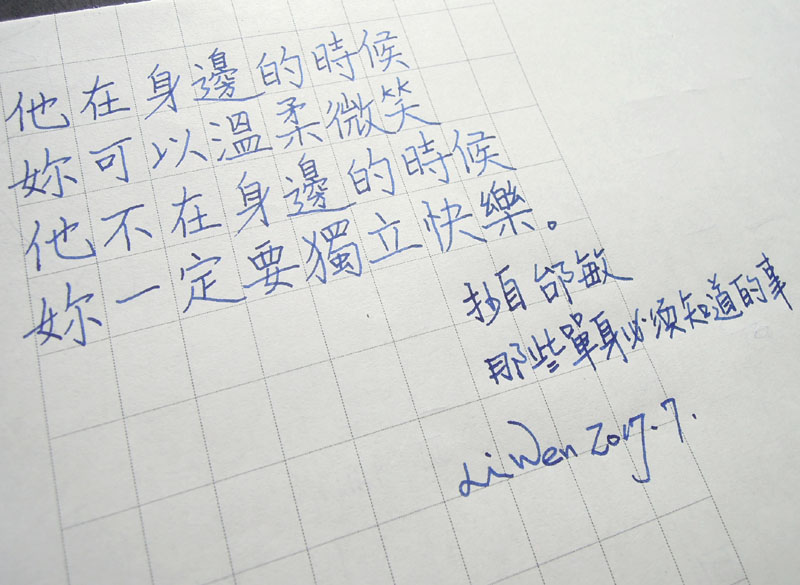 他在身邊的時候
妳可以溫柔微笑
他不在身邊的時候
妳一定要獨立快樂。
抄自 邰敏
那些單身必须知道的事
LiWen 2017.7.